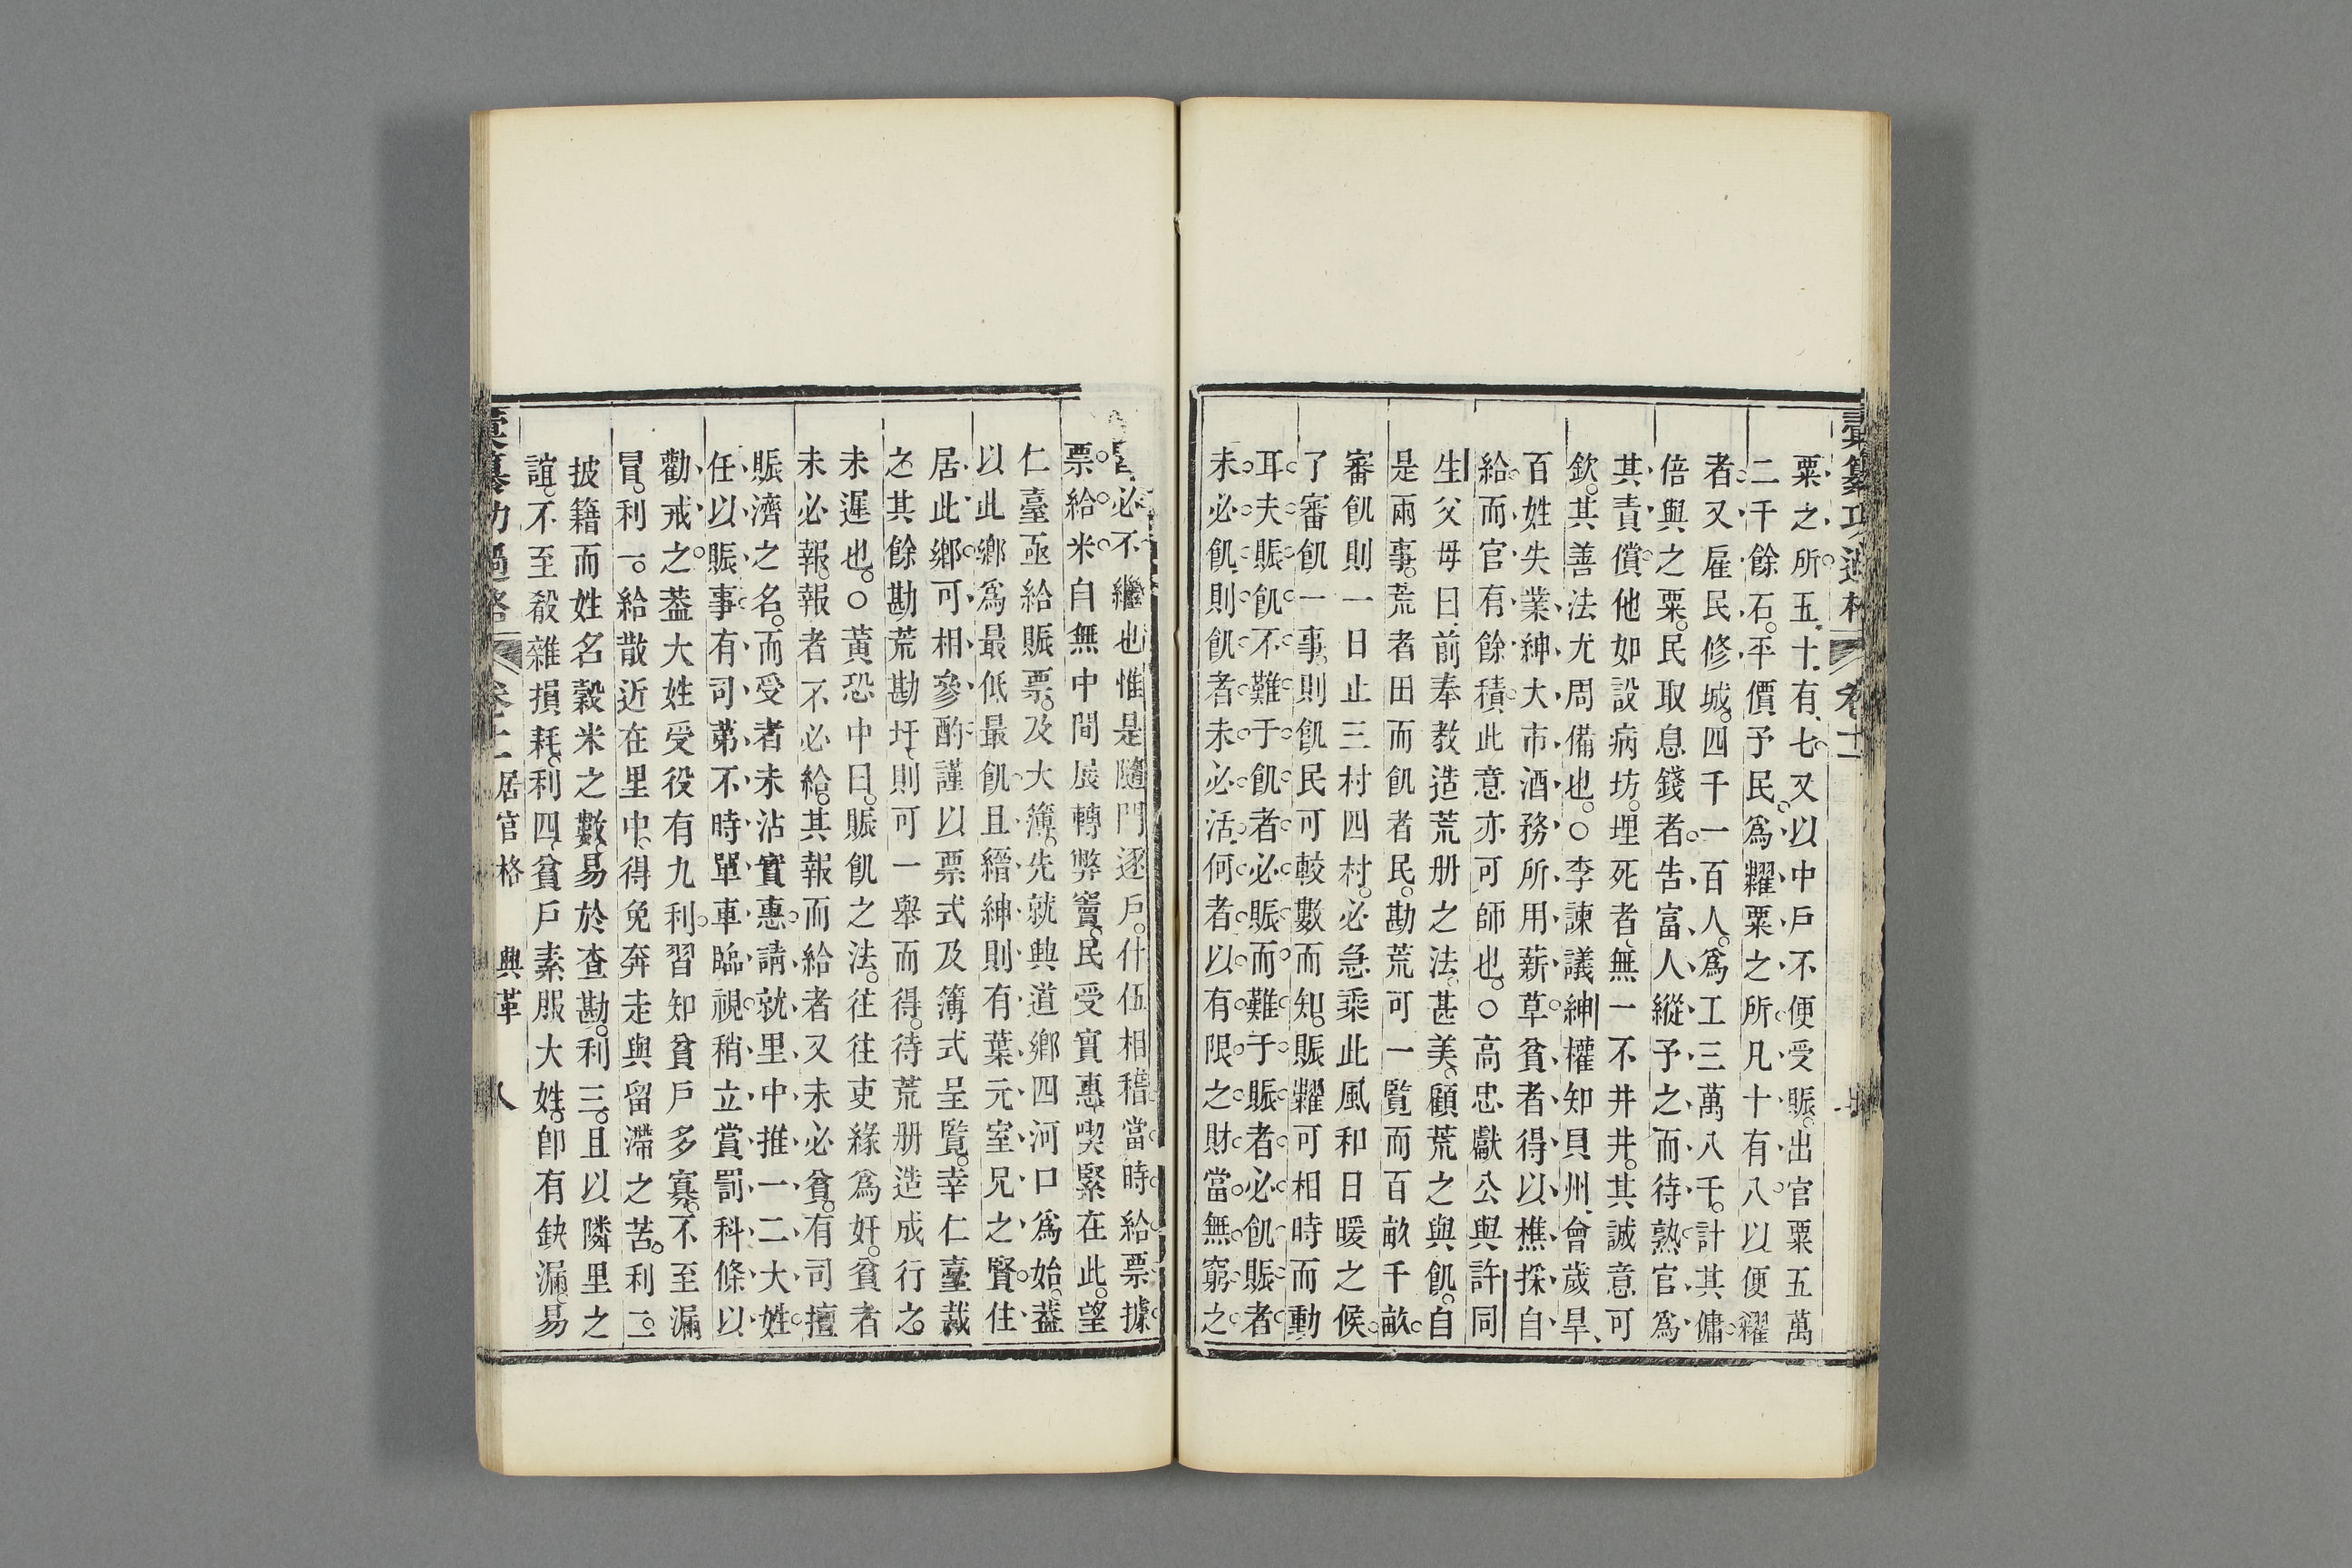 彙纂功過格 卷十二
粟之所五十有七又以中戶不便受賑出官粟五萬
二千餘石平價予民爲糶粟之所凡十有八以便糴
者又雇民修城四千一百人爲工三萬八千計其傭
倍與之粟民取息錢者告富人縱予之而待熟官爲
其責償他如設病坊埋死者無一不井井其誠意可
欽其善法尤周備也○李諫議紳權知貝州會歲旱
百姓失業紳大市酒務所用薪草貧者得以樵採自
給而官有餘積此意亦可師也○高忠獻公與許同
生父母曰前奉教造荒册之法甚美顧荒之與飢自
是兩事荒者田而飢者民勘荒可一覽而百畝千畝
審飢則一日止三村四村必急乘此風和日暖之候
了審飢一事則飢民可較數而知賑糶可相時而動
耳夫賑飢不難于飢者必賑而難于賑者必飢賑者
未必飢則飢者未必活何者以有限之財當無窮之
必不繼也惟是隨門逐戶什伍相稽當時給票據
票給米自無中間展轉弊竇民受實惠喫緊在此望
仁臺亟給賑票及大簿先就興道鄉四河口爲始葢
以此鄉爲最低最飢且縉紳則有葉元室兄之賢住
居此鄉可相參酌謹以票式及簿式呈覽幸仁臺裁
之其餘勘荒勘圩則可一舉而得待荒册造成行之
未遲也○黄恐中曰賑飢之法往往吏緣爲奸貧者
未必報報者不必給其報而給者又未必貧有司擅
賑濟之名而受者未沾實惠請就里中推一二大姓
任以賑事有司苐不時單車臨視稍立賞罰科條以
勸戒之葢大姓受役有九利習知貧戶多寡不至漏
冒利一給散近在里中得免奔走與留滯之苦利二
披籍而姓名穀米之數易於查勘利三且以隣里之
誼不至殽雜損耗利四貧戶素服大姓卽有缺漏易
彙纂功過格 卷十二 居官格 興革 八